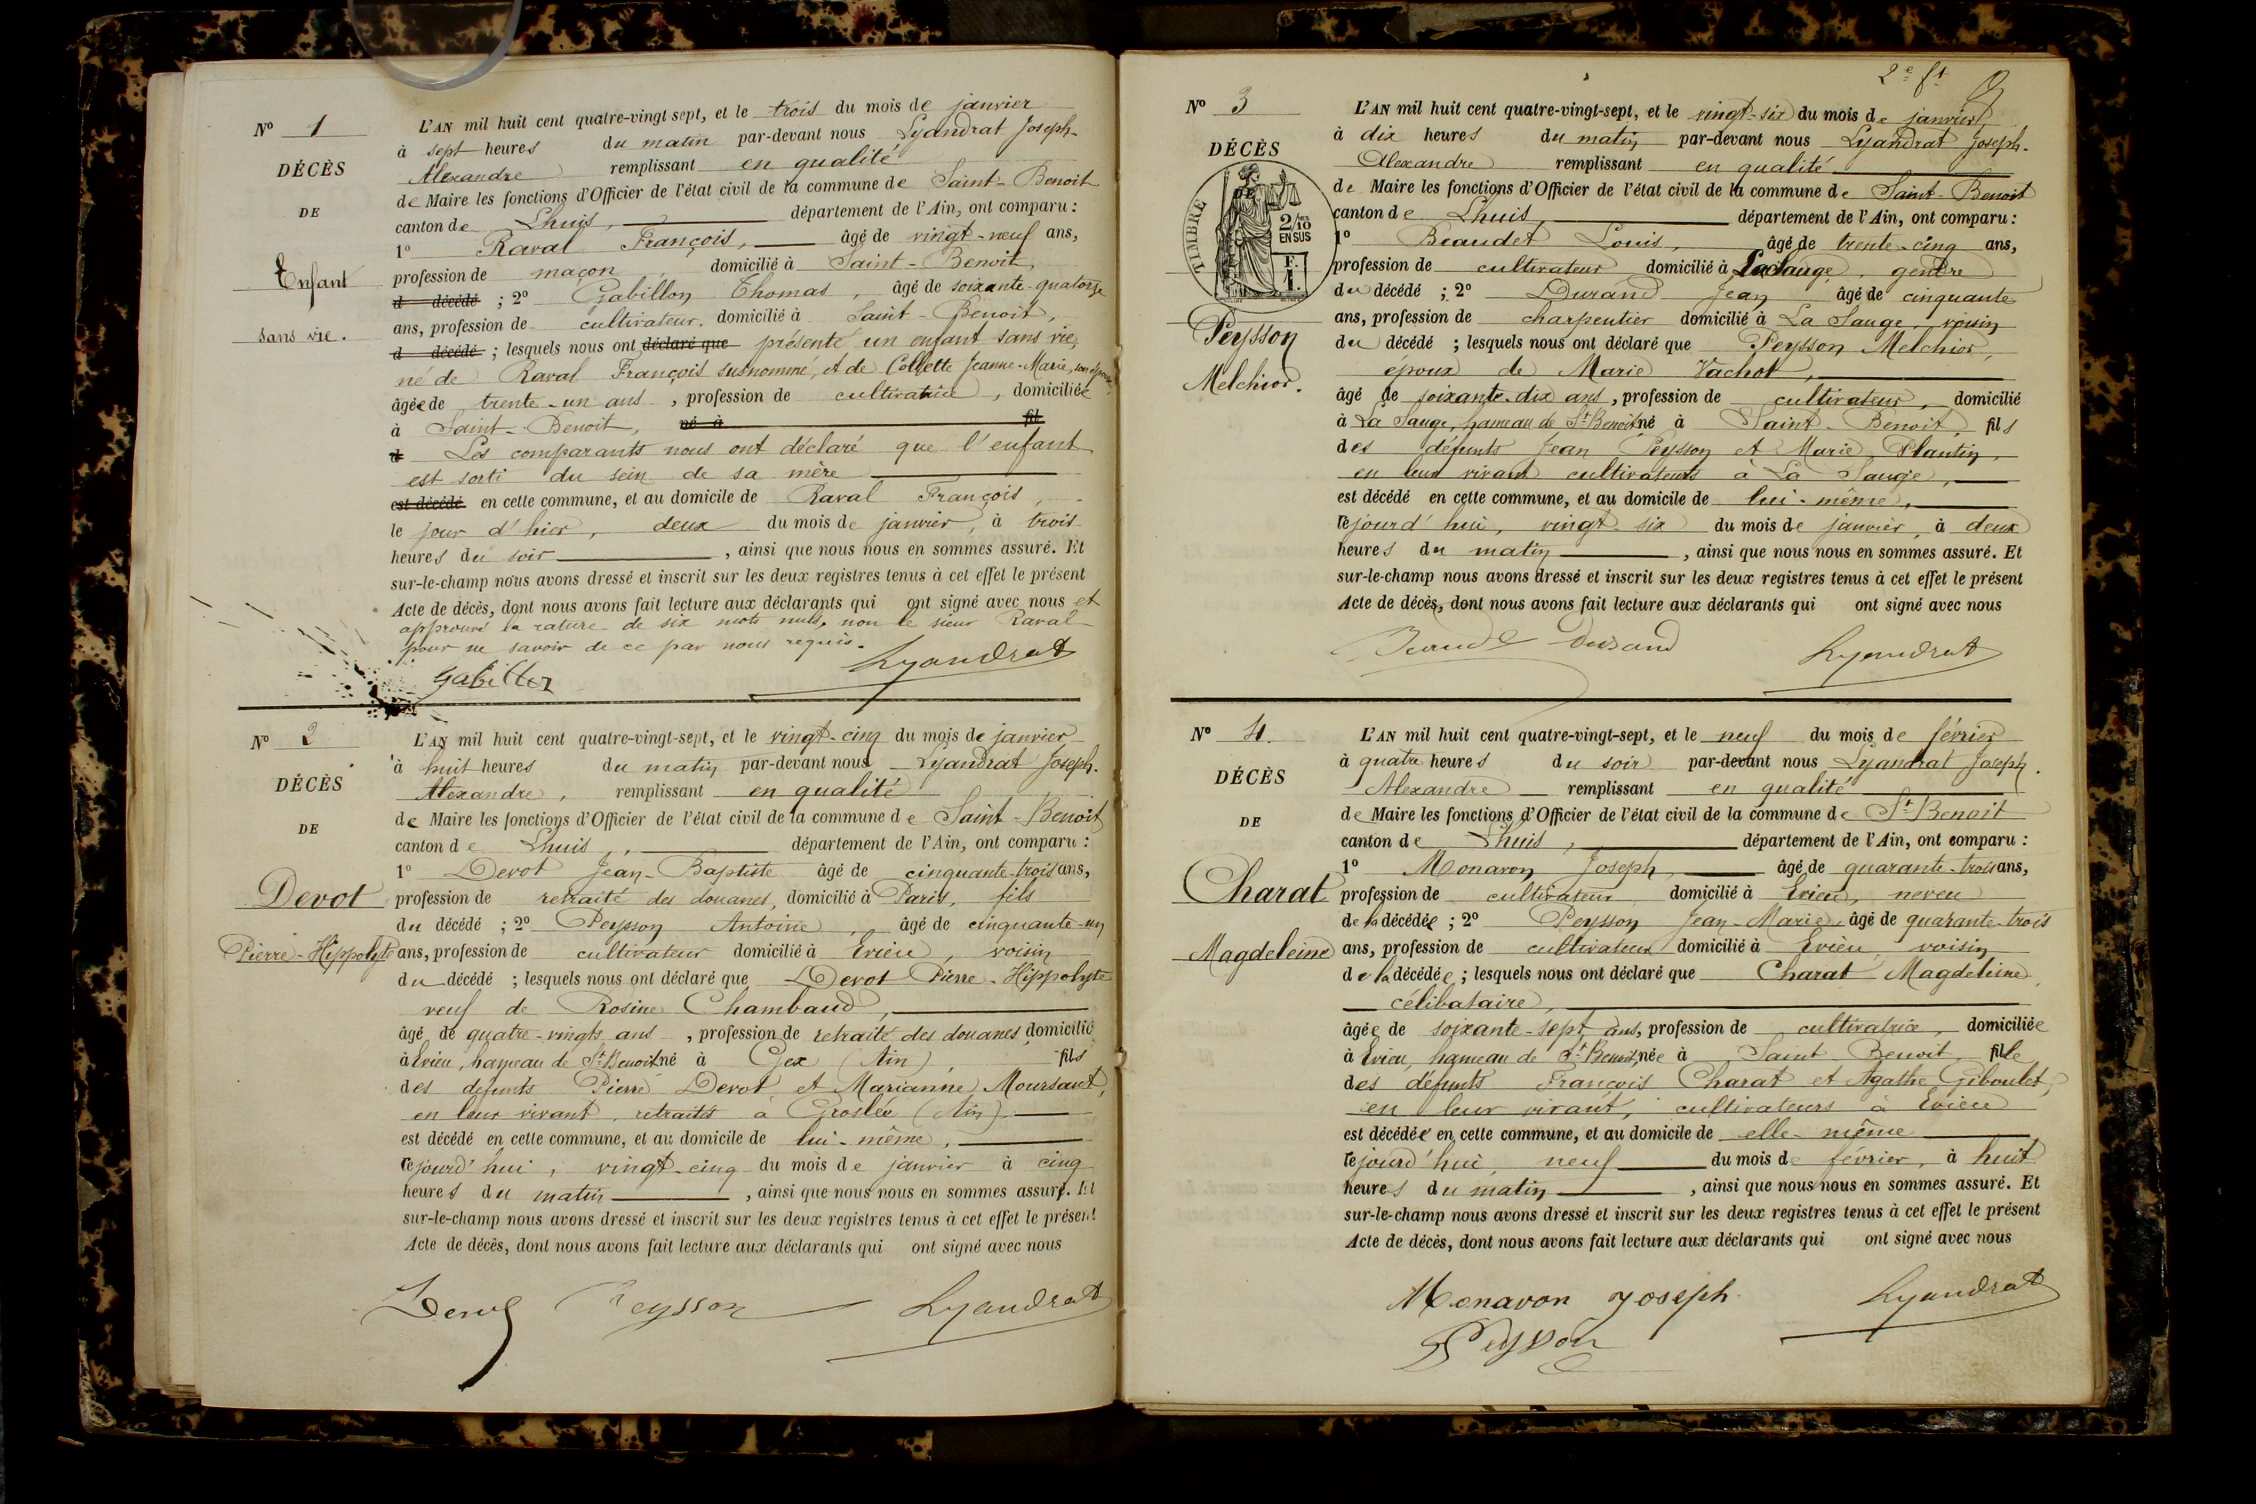 N° 1
DÉCÈS
DE
Enfant
sans vie.
L'AN mil huit cent quatre-vingt sept, et le trois du mois de janvier
à sept heures du matin par-devant nous Lyandrat Joseph-
Alexandre remplissant en qualité
de Maire les fonctions d'Officier de l'état civil de la commune de Saint-Benoit
canton de Lhuis, département de l'Ain, ont comparu :
1° Raval François, âgé de vingt-neuf ans,
profession de maçon, domicilié à Saint-Benoit,
d décédé ; 2° Gabillon Thomas, âgé de soixante-quatorze
ans, profession de cultivateur, domicilié à Saint-Benoit,
d décédé ; lesquels nous ont déclaré que présenté un enfant sans vie,
né de Raval François susnommé, et de Collette Jeanne-Marie, son épouse,
âgée de trente-un ans, profession de cultivatrice, domiciliée
à Saint-Benoit, né à fil
d Les comparants nous ont déclaré que l'enfant
est sorti du sein de sa mère
est décédé en cette commune, et au domicile de Raval François,
le jour d'hier, deux du mois de janvier, à trois
heures du soir, ainsi que nous nous en sommes assuré. Et
sur-le-champ nous avons dressé et inscrit sur les deux registres tenus à cet effet le présent
Acte de décès, dont nous avons fait lecture aux déclarants qui ont signé avec nous et
approuvé la rature de six mots nuls, non le sieur Raval
pour ne savoir de ce par nous requis.
Gabillon Lyandrat
N° 2
DÉCÈS
DE
Devot
Pierre-Hippolyte
L'AN mil huit cent quatre-vingt-sept, et le vingt-cinq du mois de janvier
à huit heures du matin par-devant nous Lyandrat Joseph-
Alexandre, remplissant en qualité
de Maire les fonctions d'Officier de l'état civil de la commune de Saint-Benoit
canton de Lhuis, département de l'Ain, ont comparu :
1° Devot Jean-Baptiste âgé de cinquante-trois ans,
profession de retraité des douanes, domicilié à Paris, fils
du décédé ; 2° Peysson Antoine, âgé de cinquante-un
ans, profession de cultivateur domicilié à Evieu, voisin
du décédé ; lesquels nous ont déclaré que Devot Pierre-Hippolyte
veuf de Rosine Chambaud,
âgé de quatre-vingts ans, profession de retraité des douanes, domicilié
à Evieu, hameau de St Benoit, né à Gex (Ain), fils
des défunts Pierre Devot et Marianne Moursaut,
en leur vivant, retraités à Groslée (Ain)
est décédé en cette commune, et au domicile de lui-même,
cejourd'hui, vingt-cinq du mois de janvier à cinq
heures du matin, ainsi que nous nous en sommes assuré. Et
sur-le-champ nous avons dressé et inscrit sur les deux registres tenus à cet effet le présent
Acte de décès, dont nous avons fait lecture aux déclarants qui ont signé avec nous
Devot Peysson Lyandrat
2e ft
N° 3
DÉCÈS
DE
TIMBRE
2/10
EN SUS
F.
1.
Peysson
Melchior.
L'AN mil huit cent quatre-vingt-sept, et le vingt-six du mois de janvier
à dix heures du matin par-devant nous Lyandrat Joseph-
Alexandre remplissant en qualité
de Maire les fonctions d'Officier de l'état civil de la commune de Saint-Benoit
canton de Lhuis, département de l'Ain, ont comparu :
1° Beaudet Louis, âgé de trente-cinq ans,
profession de cultivateur domicilié à La Sauge, gendre
du décédé ; 2° Durand Jean âgé de cinquante
ans, profession de charpentier domicilié à La Sauge, voisin
du décédé ; lesquels nous ont déclaré que Peysson Melchior,
époux de Marie Vachot,
âgé de soixante-dix ans, profession de cultivateur, domicilié
à La Sauge, hameau de St Benoit, né à Saint-Benoit, fils
des défunts Jean Peysson et Marie Plantin,
en leur vivant cultivateurs à La Sauge,
est décédé en cette commune, et au domicile de lui-même,
cejourd'hui, vingt-six du mois de janvier, à deux
heures du matin, ainsi que nous nous en sommes assuré. Et
sur-le-champ nous avons dressé et inscrit sur les deux registres tenus à cet effet le présent
Acte de décès, dont nous avons fait lecture aux déclarants qui ont signé avec nous
Durand Lyandrat
N° 4.
DÉCÈS
DE
Charat
Magdeleine
L'AN mil huit cent quatre-vingt-sept, et le neuf du mois de février
à quatre heures du soir par-devant nous Lyandrat Joseph.
Alexandre remplissant en qualité
de Maire les fonctions d'Officier de l'état civil de la commune de St Benoit
canton de Lhuis, département de l'Ain, ont comparu :
1° Monavon Joseph, âgé de quarante-trois ans,
profession de cultivateur domicilié à Evieu, neveu
de la décédée ; 2° Peysson Jean-Marie, âgé de quarante-trois
ans, profession de cultivateur domicilié à Evieu, voisin
de la décédée ; lesquels nous ont déclaré que Charat Magdeleine,
célibataire,
âgée de soixante-sept ans, profession de cultivatrice, domiciliée
à Evieu, hameau de St Benoit, née à Saint-Benoit, fille
des défunts François Charat et Agathe Giboulet,
en leur vivant, cultivateurs à Evieu
est décédée en cette commune, et au domicile de elle-même
cejourd'hui, neuf du mois de février, à huit
heures du matin, ainsi que nous nous en sommes assuré. Et
sur-le-champ nous avons dressé et inscrit sur les deux registres tenus à cet effet le présent
Acte de décès, dont nous avons fait lecture aux déclarants qui ont signé avec nous
Menavon Joseph. Lyandrat
Peysson